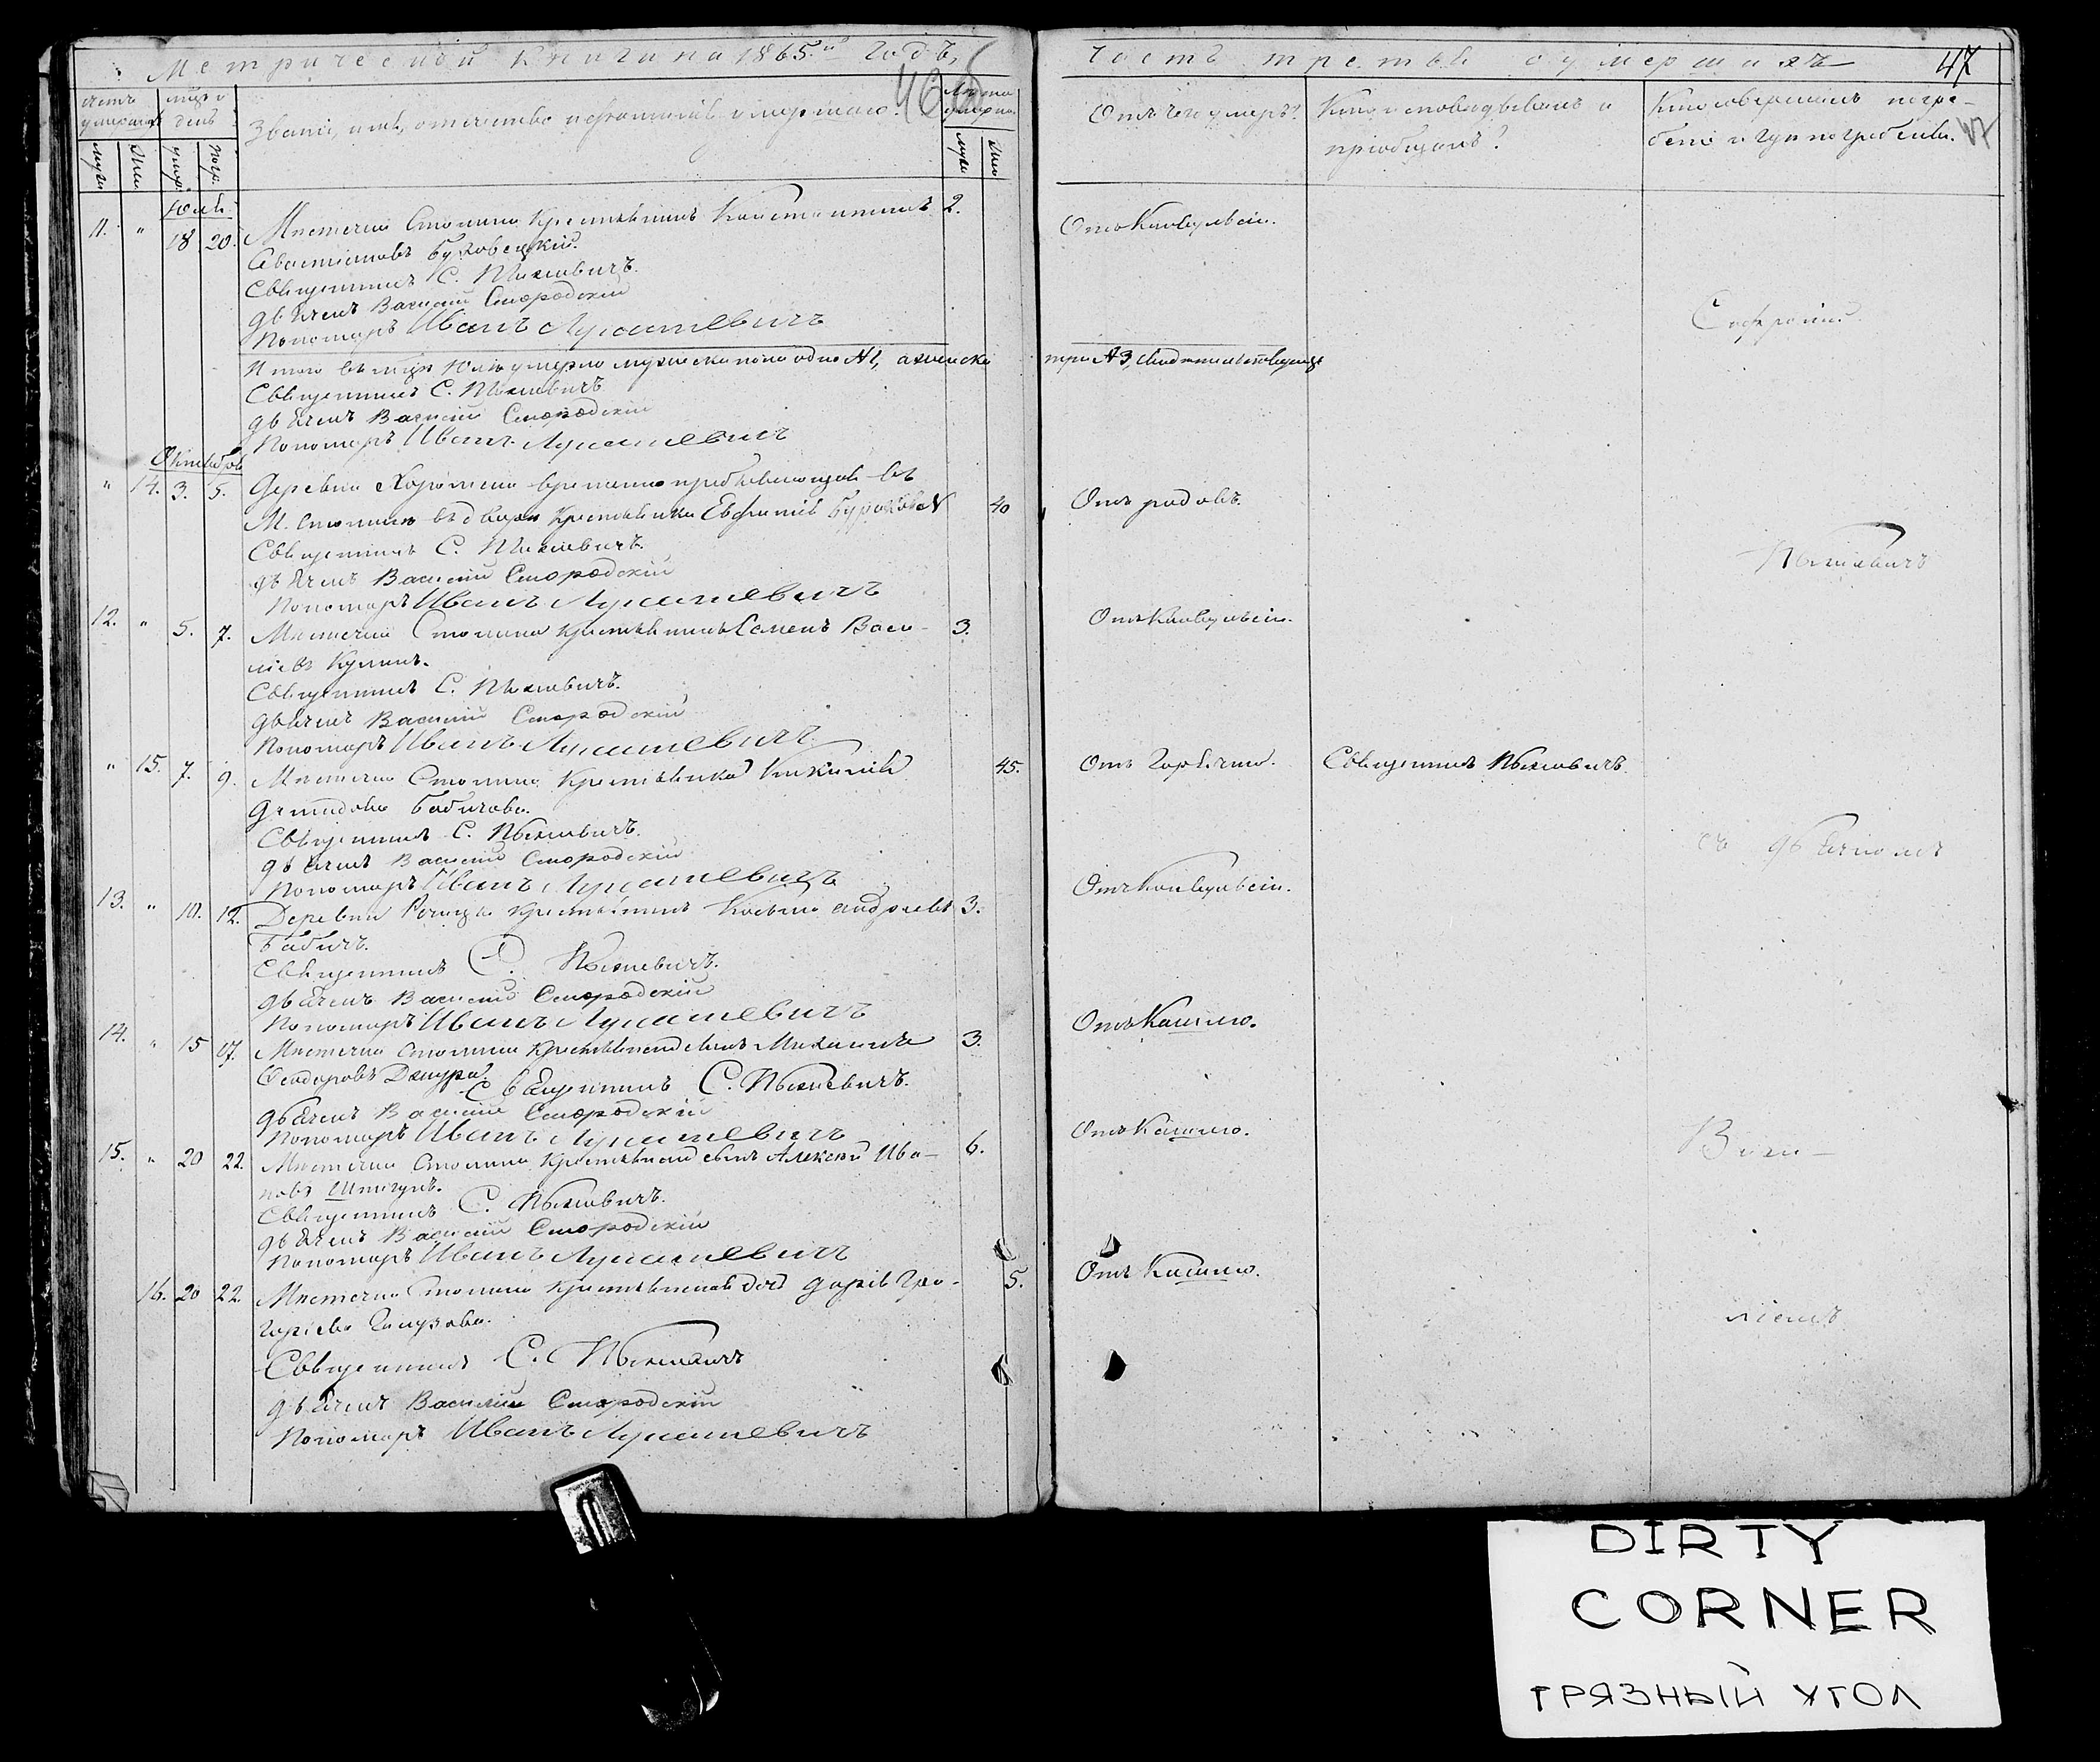 Метрической книги на 1865.ый годъ,
46 об
Счетъ умершихъ
Мѣсяцъ и день
Званіе, имя, отчество и фамилія умершаго.
Лѣта умерша.
муж. жен. умер. погр.
муж. жен.
Юль.
11. " 18 20. Мѣстечка Столина Крестьянинъ Константинъ 2.
Савостіановъ Буховецкій.
Священникъ С. Пыжевичъ.
дьячекъ Василій Смородскій
Пономарь Иванъ Лукашевичъ
Итого въ мцѣ Юлѣ умерло мужеска пола одно №1, а женска
Священникъ С. Пыжевичъ
дьячекъ Василій Смородскій
Пономарь Иванъ Лукашевичъ
Октября
" 14. 3. 5. Деревни Хоромска временно пребывающая въ
М. Столинѣ въ дворѣ Крестьянка Евфимія 40
Священникъ С. Пыжевичъ.
дьячекъ Василій Смородскій
Пономарь Иванъ Лукашевичъ
12. " 5. 7. Мѣстечка Столина крестьянинъ Семенъ Васи- 3.
ліевъ
Священникъ С. Пыжевичъ.
дьячекъ Василій Смородскій
Пономарь Иванъ Лукашевичъ
" 15. 7. 9. Мѣстечка Столина Крестьянка 45.
Демидова Бабичова.
Священникъ С. Пыжевичъ.
дьячекъ Василій Смородскій
Пономарь Иванъ Лукашевичъ
13. " 10. 12. Деревни Рочица крестьянинъ Косьма Андреевъ 3.
Бабичъ.
Священникъ С. Пыжевичъ.
дьячекъ Василій Смородскій
Пономарь Иванъ Лукашевичъ
14. " 15 17. Мѣстечка Столина Крестьянскій сынъ Михаилъ 3.
Феодоровъ
Священникъ С. Пыжевичъ.
дьячекъ Василій Смородскій
Пономарь Иванъ Лукашевичъ
15. " 20 22. Мѣстечка Столина Крестьянскій сынъ Алексій Ива- 6.
новъ
Священникъ С. Пыжевичъ.
дьячекъ Василій Смородскій
Пономарь Иванъ Лукашевичъ
16. 20 22. Мѣстечка Столина Крестьянская дочь Дарія Гри- 5.
горіева
Священникъ С. Пыжевичъ
дьячекъ Василій Смородскій
Пономарь Иванъ Лукашевичъ
Часть третья о умершихъ
47
Отъ чего умеръ?
Кто исповѣдывалъ и пріобщалъ?
Кто совершалъ погре-
беніе и гдѣ погребены.
47
Отъ Конвульсіи.
Софроній
три №3, свидѣтельствуемъ
Отъ родовъ.
Пыжевичъ
Отъ Конвульсіи.
Отъ Горячки. Священникъ Пыжевичъ.
съ дьячкомъ
Отъ Конвульсіи.
Отъ Кашлю.
Отъ Кашлю.
Васи-
Отъ Кашлю.
ліемъ
DIRTY
CORNER
ГРЯЗНЫЙ УГОЛ